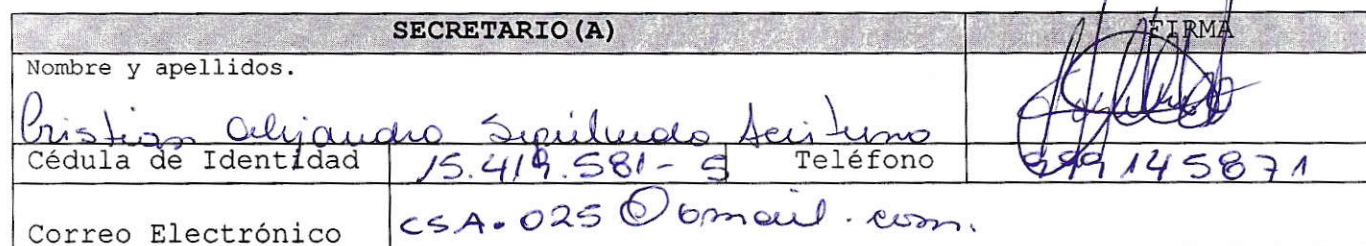 SECRETARIO(A) FIRMA
Nombre y apellidos.
Cristian Alejandro Sepúlveda Aceituno
Cédula de Identidad 15.419.581-5 Teléfono 999145871
Correo Electrónico CSA.025@Gmail.com.